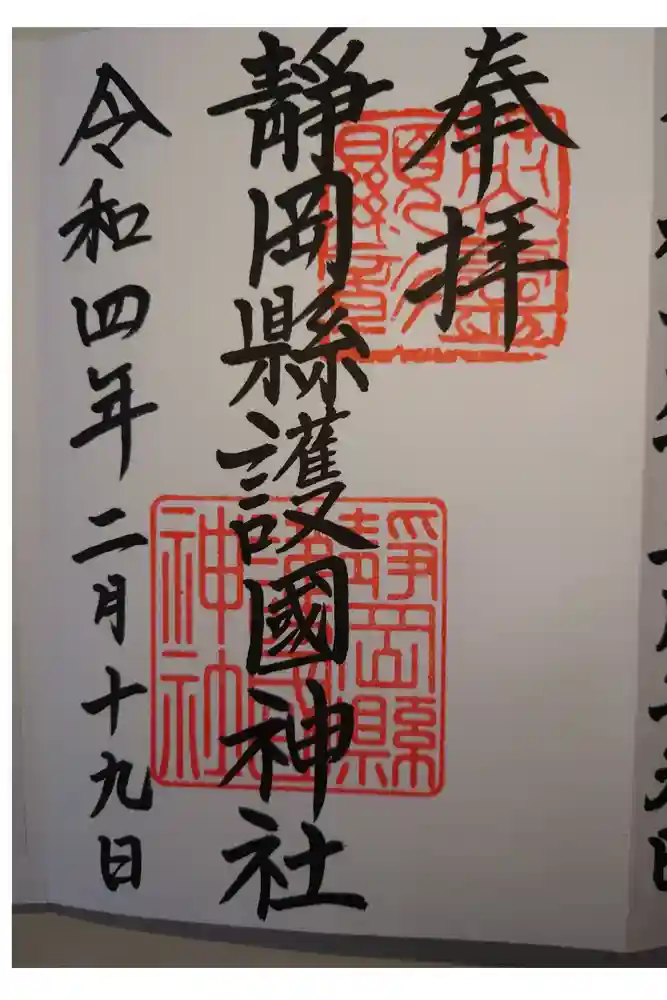 奉拝
靜岡縣護國神社
令和四年二月十九日
靜岡縣護國神社